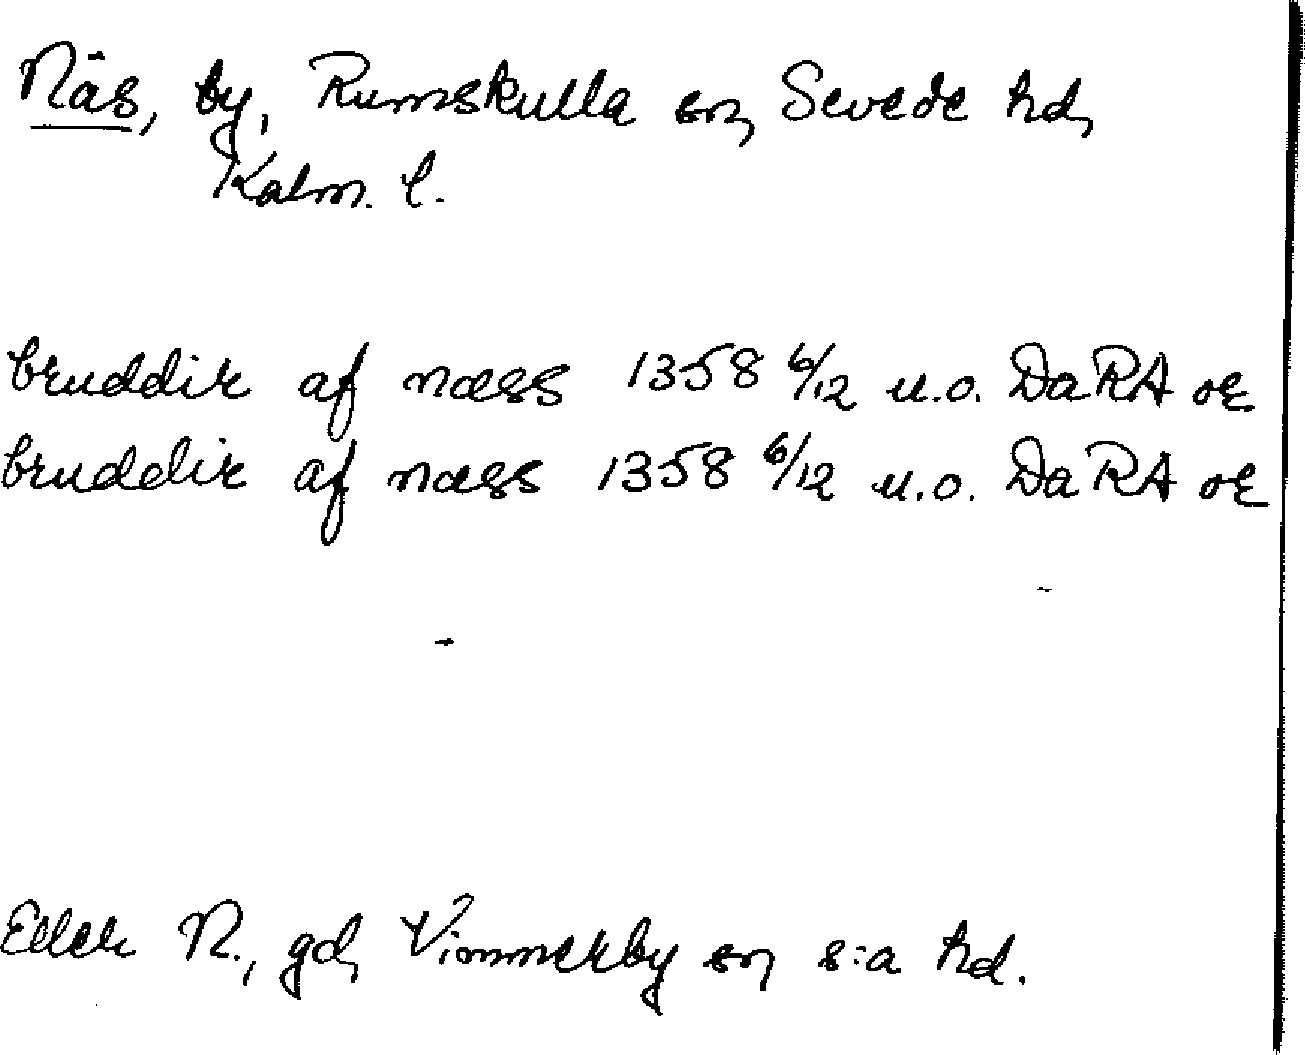 Näs, by, Rumskulla sn, Sevede hd,
Kalm. l.
bruddir af næss 1358 6/12 u.o. DaRA or
bruddir af næss 1358 6/12 u.o. DaRA or
Eller N., gd, Vimmerby sn s:a hd.